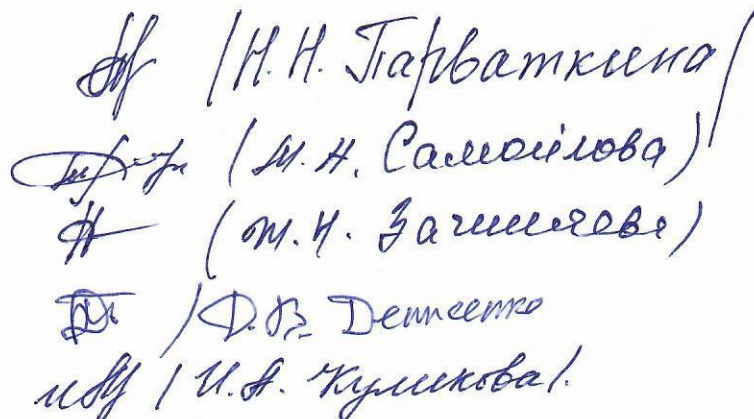 /Н.Н. Парваткина/
(М.Н. Самойлова)
(Т.Н.
/Д.В. Денисенко
/И.А. Куликова/.